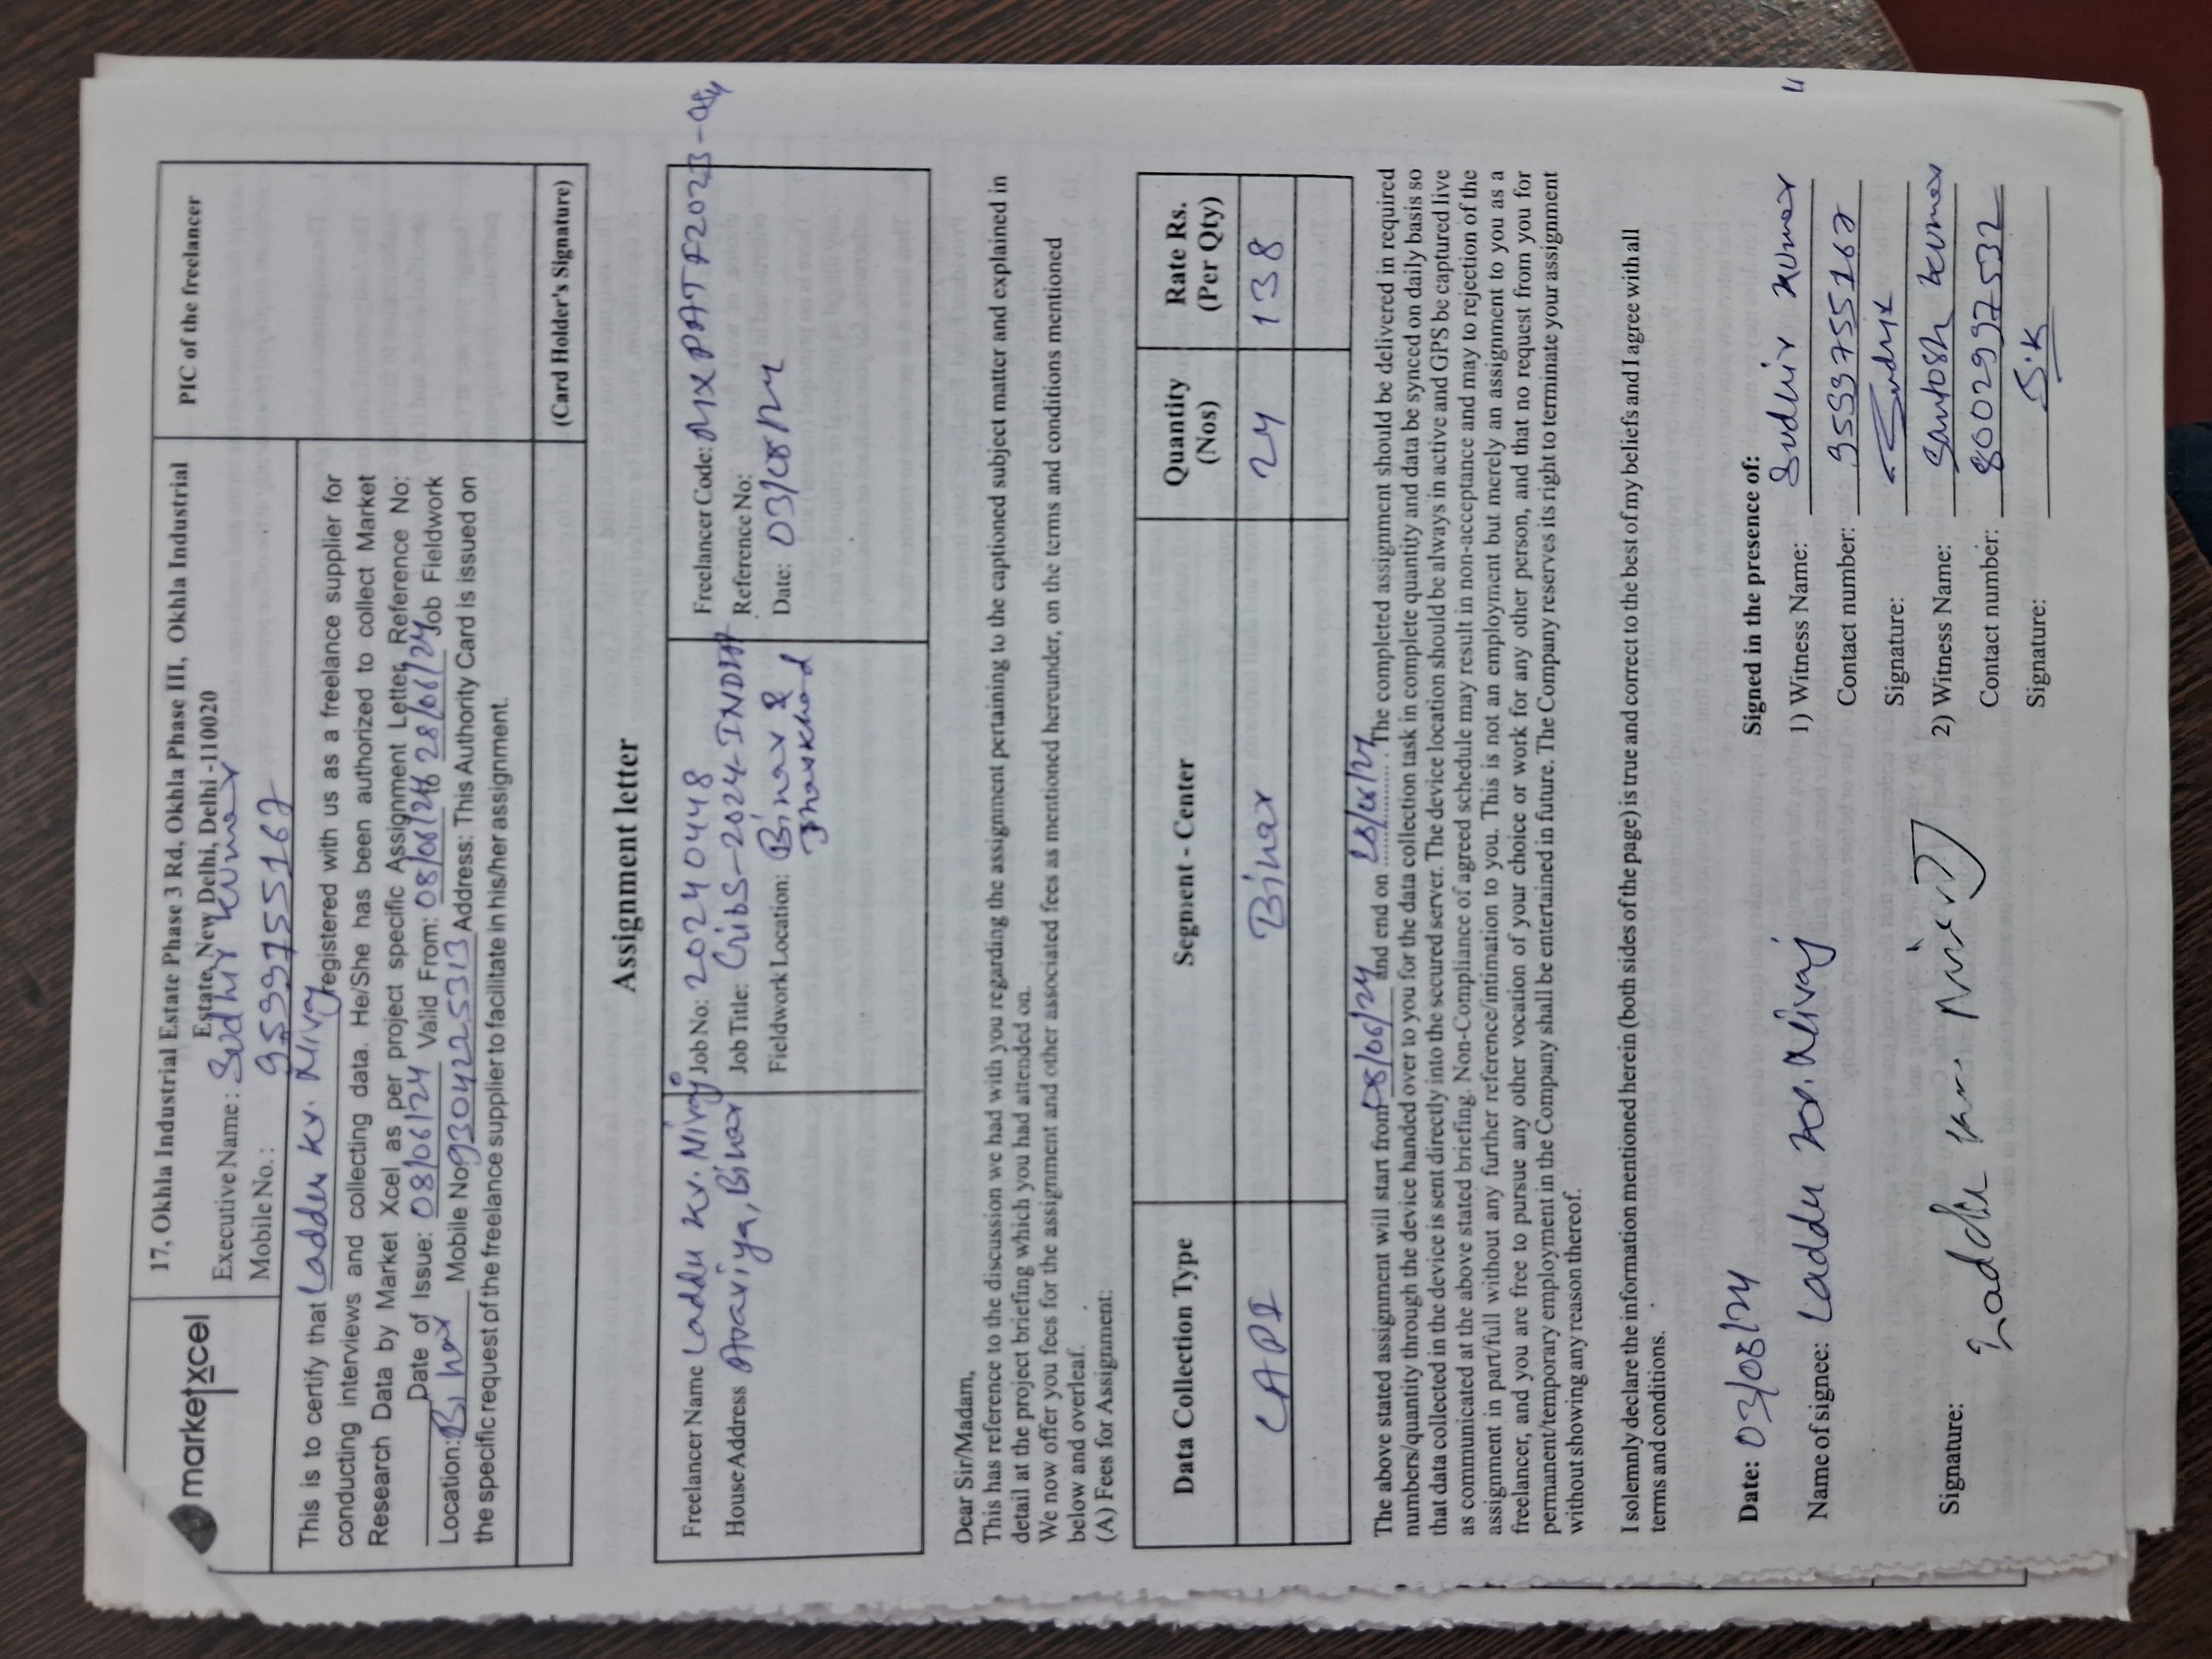 marketxcel
17, Okhla Industrial Estate Phase 3 Rd, Okhla Phase III, Okhla Industrial
Estate, New Delhi, Delhi -110020
Executive Name : Sudhir Kumar
Mobile No. : 9599755167
PIC of the freelancer
This is to certify that Laddu Kr. Niraj registered with us as a freelance supplier for
conducting interviews and collecting data. He/She has been authorized to collect Market
Research Data by Market Xcel as per project specific Assignment Letter, Reference No:
Date of Issue: 08/06/24 Valid From: 08/06/24 to 28/06/24 Job Fieldwork
Location: Bihar Mobile No 9304225313 Address: This Authority Card is issued on
the specific request of the freelance supplier to facilitate in his/her assignment.
(Card Holder's Signature)
Assignment letter
Freelancer Name Laddu Kr. Niraj
House Address Arariya, Bihar
Job No: 20240448
Job Title: CribS-2024-IND
Fieldwork Location: Bihar &
Jharkhand
Freelancer Code: MXPATF2023-
Reference No:
Date: 03/08/24
Dear Sir/Madam,
This has reference to the discussion we had with you regarding the assignment pertaining to the captioned subject matter and explained in
detail at the project briefing which you had attended on.
We now offer you fees for the assignment and other associated fees as mentioned hereunder, on the terms and conditions mentioned
below and overleaf.
(A) Fees for Assignment:
Data Collection Type Segment - Center Quantity (Nos) Rate Rs. (Per Qty)
CAPI Bihar 24 138
The above stated assignment will start from 08/06/24 and end on 28/06/24. The completed assignment should be delivered in required
numbers/quantity through the device handed over to you for the data collection task in complete quantity and data be synced on daily basis so
that data collected in the device is sent directly into the secured server. The device location should be always in active and GPS be captured live
as communicated at the above stated briefing. Non-Compliance of agreed schedule may result in non-acceptance and may to rejection of the
assignment in part/full without any further reference/intimation to you. This is not an employment but merely an assignment to you as a
freelancer, and you are free to pursue any other vocation of your choice or work for any other person, and that no request from you for
permanent/temporary employment in the Company shall be entertained in future. The Company reserves its right to terminate your assignment
without showing any reason thereof.
I solemnly declare the information mentioned herein (both sides of the page) is true and correct to the best of my beliefs and I agree with all
terms and conditions.
Date: 03/08/24
Name of signee: Laddu Kr. Niraj
Signature: Laddu Kr. Niraj
Signed in the presence of:
1) Witness Name: Sudhir Kumar
Contact number: 9599755167
Signature: Sudhir
2) Witness Name: Santosh Kumar
Contact number: 8002997532
Signature: S.K